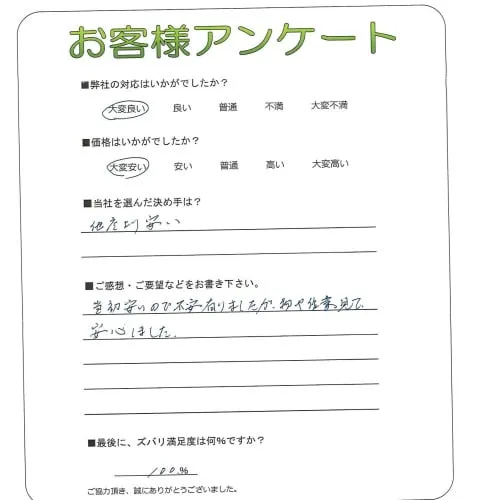 お客様アンケート
■弊社の対応はいかがでしたか?
大変良い 良い 普通 不満 大変不満
■価格はいかがでしたか?
大変安い 安い 普通 高い 大変高い
■当社を選んだ決め手は?
他店より安い
■ご感想・ご要望などをお書き下さい。
当初安いので不安有りましたが、物や作業見て、
安心しました。
■最後に、ズバリ満足度は何%ですか?
100%
ご協力頂き、誠にありがとうございました。